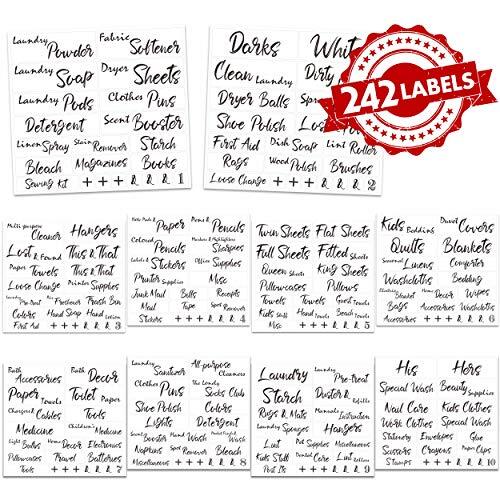 Laundry Powder Fabric Softener
Laundry Soap Dryer Sheets
Laundry Pods Clothes Pins
Detergent Scent Booster
Linen Spray Stain Remover Starch
Bleach Magazines Books
Sewing Kit + + + & & & 1
Darks Whit
Clean Laundry Dirty
Dryer Balls Spray
Shoe Polish Lost
First Aid Dish Soap
Rags Wood Polish Brushes
Loose Change + + + & & & 2
242 LABELS
Multi-purpose Cleaner Hangers
Lost & Found This & That
Paper Towels Towels
Loose Change Printer Supplies
Laundry Pre-Treat Trash Bin
Colors Hand Soap Hand Lotion
First Aid + + + & & & 3
Note Pads & Paper Pens & Pencils
Colored Pencils Markers & Highlighters Sharpies
Labels & Stickers Office Supplies
Printer Supplies Misc
Junk Mail Bills Receipts
Mail Tape Spot Remover
Stickers + + + & & & 4
Twin Sheets Flat Sheets
Full Sheets Fitted Sheets
Queen Sheets King Sheets
Pillowcases Pillows
Towels Guest Towels
Misc + + + & & & 5
Kids Bedding Duvet Covers
Quilts Blankets
Seasonal Linens Comforter
Washcloths Bedding
Electric Blanket Home Decor Wipes
Bags Accessories Washcloths
+ + + & & & 6
Bath Accessories Bath Decor
Paper Towels Toilet Paper
Chargers & Cables Tools
Medicine Children's Medicine
Light Bulbs Home Decor Electronics
Towels Travel Batteries
Pillowcases Tools + + + & & & 7
Laundry Sanitizer All-purpose Cleaners
Clothes Pins The Lonely Socks Club
Shoe Polish Colors
Lights Detergent
Scent Booster Hand Wash
Napkins Spot Remover
Miscellaneous + + + & & & 8
Laundry Starch Pre-treat
Rugs & Mats Duster & Refills
Laundry Sponges Manual Instruction
Lint Pet Supplies Hangers
Lint Stuff Miscellaneous
+ + + & & & 9
His Hers
Special Wash Beauty Supplies
Nail Care Kids Clothes
Work Clothes Special Wash
Stationery Envelopes Glue
Scissors Crayons Paper Clips
Stamps + + + & & & 10